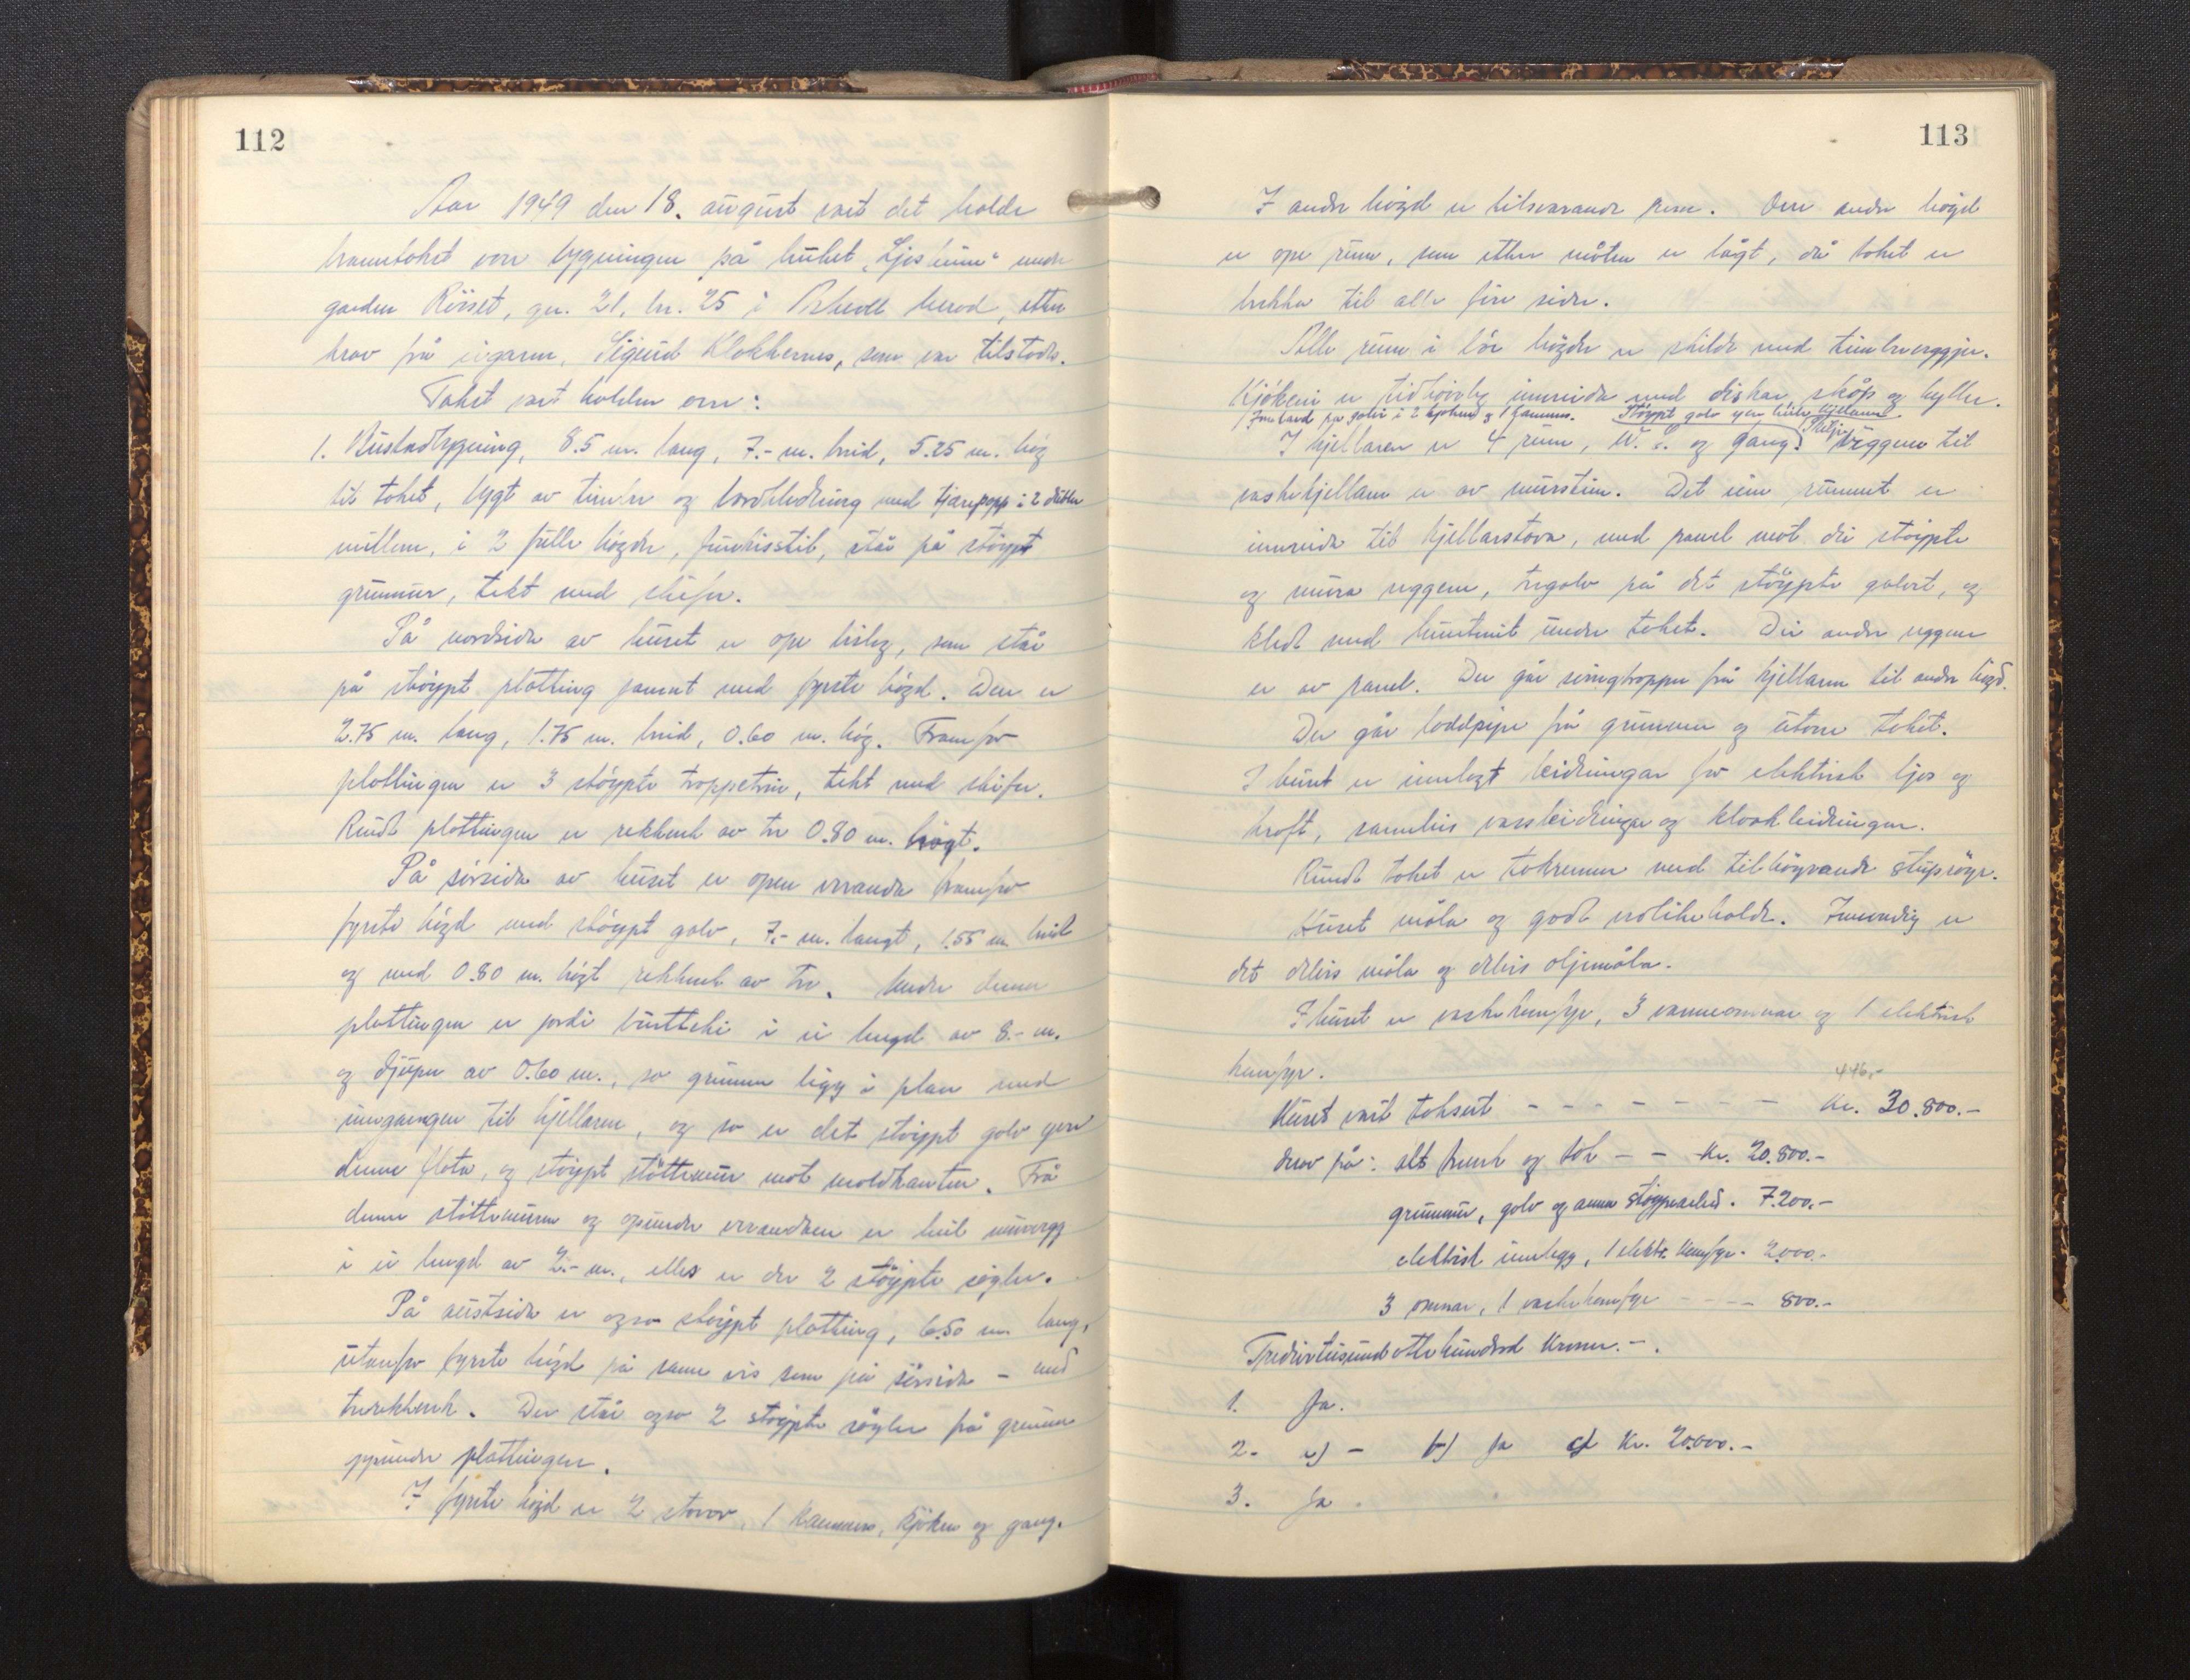 112
Aar 1949 den 18. august vart det halde
branntakst over bygningen på bruket „Ljosheim“ under
garden Röiset, gn. 21, br. 25 i Askvoll herad, etter
krav frå eigaren, Sigurd Klokkernes, som var tilstades.
Takst vart halden over:
1. Bustadbygning, 8.5 m. lang, 7.- m. breid, 5.25 m. høg
til taket, bygt av timber og bordkledning med tjærepapp i 2 dobler
millom, i 2 fulle högder, funkisstil, står på støypt
grunnmur, tekt med skifer.
På nordsida av huset er ope bislag, som står
på støypt plotting jamnt med fyrste högd. Den er
2.75 m. lang, 1.75 m. breid, 0.60 m. høg. Framfor
plottingen er 3 støypte troppetrin, tekt med skifer.
Rundt plottingen er rekkverk av tre 0.80 m. høgt.
På sørsida av huset er open veranda framfor
fyrste högd med støypt golv, 7.- m. langt, 1.55 m. breidt
og med 0.80 m. høgt rekkverk av tre. Under denne
plottingen er jordi burtteki i ei lengd av 8.- m.
og djupn av 0.60 m., so grunnen ligg i plan med
inngangen til kjellaren, og so er det støypt golv yver
denne flata, og støypt støttemur mot moldkanten. Frå
denne støttemuren og opunder verandaen er heil murvegg
i ei lengd av 2.- m., elles er der 2 støypte søyler.
På austsida er ogso støypt plotting, 6.50 m. lang,
utanfor fyrste högd på same vis som på sørsida - med
trerekkverk. Der står ogso 2 støypte søyler frå grunnen
uppunder plottingen.
I fyrste högd er 2 stovor, 1 kammers, kjöken og gang.
113
I andre högd er tilsvarande rum. Over andre högd
er ope rum, som etter måten er lågt, då taket er
brekka til alle fire sider.
Alle rum i båe högder er skilde med timbervegger.
Kjökeni er tidhøveleg innreidde med diskar, skåp og hyller.
Støypt golv yver heile kjellaren
I kjellaren er 4 rum, W. C. og gang. Skiljeveggene til
vaskekjellaren er av murstein. Det eine rummet er
innreidd til kjellarstova, med panel mot dei støypte
og mura veggene, tregolv på det støypte golvet, og
kledt med huntonit under taket. Dei andre veggene
er av panel. Der går svingtroppe frå kjellaren til andre högd.
Der går loddpipe frå grunnen og utover taket.
I huset er innlagt leidningar for elektrisk ljos og
kraft, samleis vassleidningar og kloakkleidningar.
Rundt taket er takrenner med tilhøyrande stuprøyr.
Huset måla og godt vedlikehalde. Innvendig er
det delvis måla og delvis oljemåla.
I huset er vaskekomfyr, 3 varmeomnar og 1 elektrisk
komfyr.
446.-
Huset vart taksert - - - - - - - - Kr. 30.800.-
derav på: alt treverk og tak - - Kr. 20.800.-
grunnmur, golv og anna støypearbeid. 7.200.-
elektrisk innlegg, 1 elektr. komfyr. 2.000.-
3 omnar, 1 vaskekomfyr - - - - 800.-
Tredivetusundottehundrad kroner.-.
1. Ja.
2. a) - b) Ja c) Kr. 20.000.-
3. Ja.